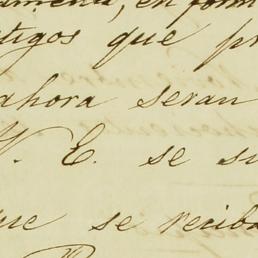 en form
tigos que pr
ahora seran
V. E. se su
que se reciba